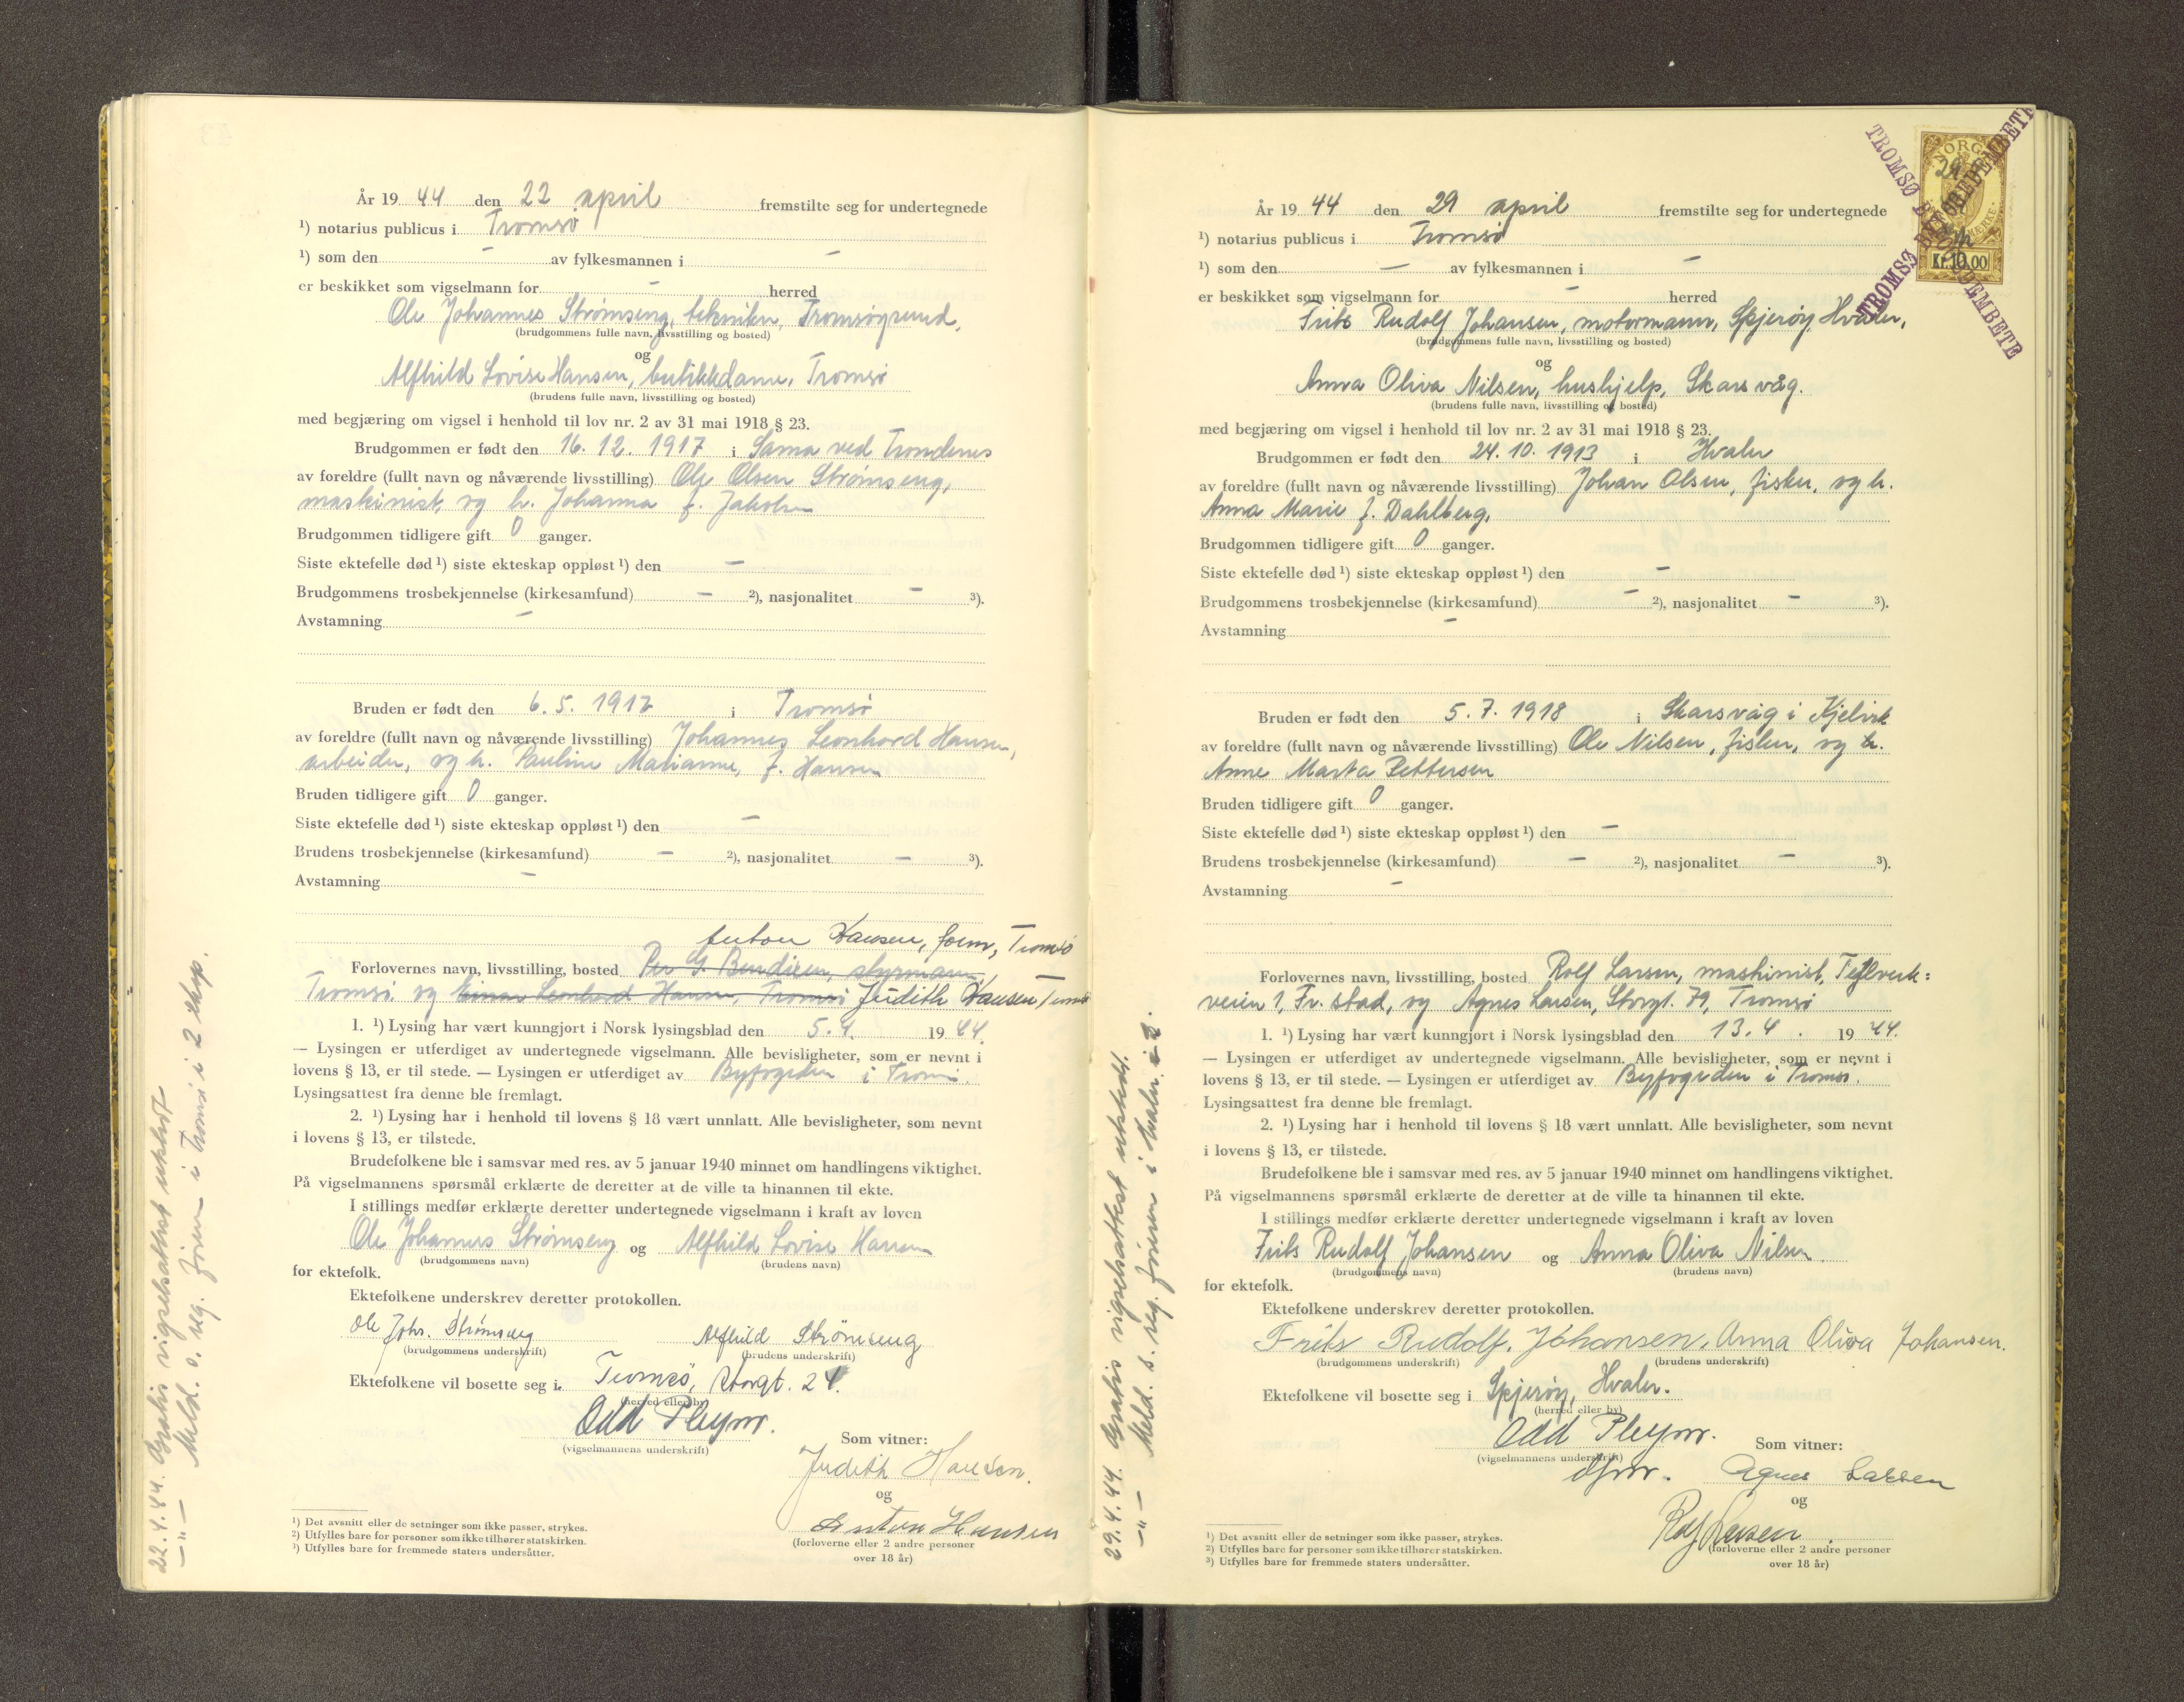 År 1944 den 22 april fremstilte seg for undertegnede
¹) notarius publicus i Tromsø
¹) som den – av fylkesmannen i –
er beskikket som vigselmann for – herred
Ole Johannes Strømseng, tekniker, Tromsøysund,
(brudgommens fulle navn, livsstilling og bosted)
og
Alfhild Lovise Hansen, butikkdame, Tromsø
(brudens fulle navn, livsstilling og bosted)
med begjæring om vigsel i henhold til lov nr. 2 av 31 mai 1918 § 23.
Brudgommen er født den 16. 12. 1917 i Sama ved Trondenes
av foreldre (fullt navn og nåværende livsstilling) Ole Olsen Strømseng,
maskinist, og h. Johanna f. Jakobsen
Brudgommen tidligere gift 0 ganger.
Siste ektefelle død ¹) siste ekteskap oppløst ¹) den –
Brudgommens trosbekjennelse (kirkesamfund) – ²), nasjonalitet – ³).
Avstamning –
Bruden er født den 6. 5. 1917 i Tromsø
av foreldre (fullt navn og nåværende livsstilling) Johannes Leonhard Hansen,
arbeider, og h. Pauline Marianne, f. Hansen
Bruden tidligere gift 0 ganger.
Siste ektefelle død ¹) siste ekteskap oppløst ¹) den –
Brudens trosbekjennelse (kirkesamfund) – ²), nasjonalitet – ³).
Avstamning –
Anton Hansen, form, Tromsø
Forlovernes navn, livsstilling, bosted Per G. Bendixen, styrmann,
Tromsø og Einar Leonhard Hansen, Tromsø Judith Hansen Tromsø
1. ¹) Lysing har vært kunngjort i Norsk lysingsblad den 5. 4. 1944.
— Lysingen er utferdiget av undertegnede vigselmann. Alle bevisligheter, som er nevnt i
lovens § 13, er til stede. — Lysingen er utferdiget av Byfogden i Tromsø.
Lysingsattest fra denne ble fremlagt.
2. ¹) Lysing har i henhold til lovens § 18 vært unnlatt. Alle bevisligheter, som nevnt
i lovens § 13, er tilstede.
Brudefolkene ble i samsvar med res. av 5 januar 1940 minnet om handlingens viktighet.
På vigselmannens spørsmål erklærte de deretter at de ville ta hinannen til ekte.
I stillings medfør erklærte deretter undertegnede vigselmann i kraft av loven
Ole Johannes Strømseng og Alfhild Lovise Hansen
(brudgommens navn) (brudens navn)
for ektefolk.
Ektefolkene underskrev deretter protokollen.
Ole Johs. Strømseng Alfhild Strømseng
(brudgommens underskrift) (brudens underskrift)
Ektefolkene vil bosette seg i Tromsø, Storgt. 24.
(herred eller by)
Odd Pleym.
(vigselmannens underskrift)
Som vitner:
Judith Hansen.
og
Anton Hansen
(forloverne eller 2 andre personer
over 18 år)
¹) Det avsnitt eller de setninger som ikke passer, strykes.
²) Utfylles bare for personer som ikke tilhører statskirken.
³) Utfylles bare for fremmede staters undersåtter.
22.4.44. Gratis vigselsattest utstedt
—"— Meld. s. reg. føreren i Tromsø i 2 eksp.
År 1944 den 29 april fremstilte seg for undertegnede
¹) notarius publicus i Tromsø
¹) som den – av fylkesmannen i –
er beskikket som vigselmann for – herred
Frits Rudolf Johansen, motormann, Spjerøy, Hvaler,
(brudgommens fulle navn, livsstilling og bosted)
og
Anna Oliva Nilsen, hushjelp, Skarsvåg.
(brudens fulle navn, livsstilling og bosted)
med begjæring om vigsel i henhold til lov nr. 2 av 31 mai 1918 § 23.
Brudgommen er født den 24. 10. 1913 i Hvaler
av foreldre (fullt navn og nåværende livsstilling) Johan Olsen, fisker, og h.
Anna Marie f. Dahlberg.
Brudgommen tidligere gift 0 ganger.
Siste ektefelle død ¹) siste ekteskap oppløst ¹) den –
Brudgommens trosbekjennelse (kirkesamfund) – ²), nasjonalitet – ³).
Avstamning –
Bruden er født den 5. 7. 1918 i Skarsvåg i Kjelvik
av foreldre (fullt navn og nåværende livsstilling) Ole Nilsen, fisker, og h.
Anne Marta Pettersen
Bruden tidligere gift 0 ganger.
Siste ektefelle død ¹) siste ekteskap oppløst ¹) den –
Brudens trosbekjennelse (kirkesamfund) – ²), nasjonalitet – ³).
Avstamning –
Forlovernes navn, livsstilling, bosted Rolf Larsen, maskinist, Teglverk-
veien 1, Fr.stad, og Agnes Larsen, Storgt. 79, Tromsø
1. ¹) Lysing har vært kunngjort i Norsk lysingsblad den 13. 4. 1944.
— Lysingen er utferdiget av undertegnede vigselmann. Alle bevisligheter, som er nevnt i
lovens § 13, er til stede. — Lysingen er utferdiget av Byfogden i Tromsø.
Lysingsattest fra denne ble fremlagt.
2. ¹) Lysing har i henhold til lovens § 18 vært unnlatt. Alle bevisligheter, som nevnt
i lovens § 13, er tilstede.
Brudefolkene ble i samsvar med res. av 5 januar 1940 minnet om handlingens viktighet.
På vigselmannens spørsmål erklærte de deretter at de ville ta hinannen til ekte.
I stillings medfør erklærte deretter undertegnede vigselmann i kraft av loven
Frits Rudolf Johansen og Anna Oliva Nilsen
(brudgommens navn) (brudens navn)
for ektefolk.
Ektefolkene underskrev deretter protokollen.
Frits Rudolf Johansen. Anna Oliva Johansen.
(brudgommens underskrift) (brudens underskrift)
Ektefolkene vil bosette seg i Spjerøy, Hvaler.
(herred eller by)
Odd Pleym.
(vigselmannens underskrift)
Som vitner:
Agnes Larsen
og
Rolf Larsen
(forloverne eller 2 andre personer
over 18 år)
¹) Det avsnitt eller de setninger som ikke passer, strykes.
²) Utfylles bare for personer som ikke tilhører statskirken.
³) Utfylles bare for fremmede staters undersåtter.
29.4.44. Gratis vigselsattest utstedt.
—"— Meld. s. reg. føreren i Hvaler i 2.
NORGE
Kr. 10.00
TROMSØ BYFOGDEMBETE
TROMSØ BYFOGDEMBETE